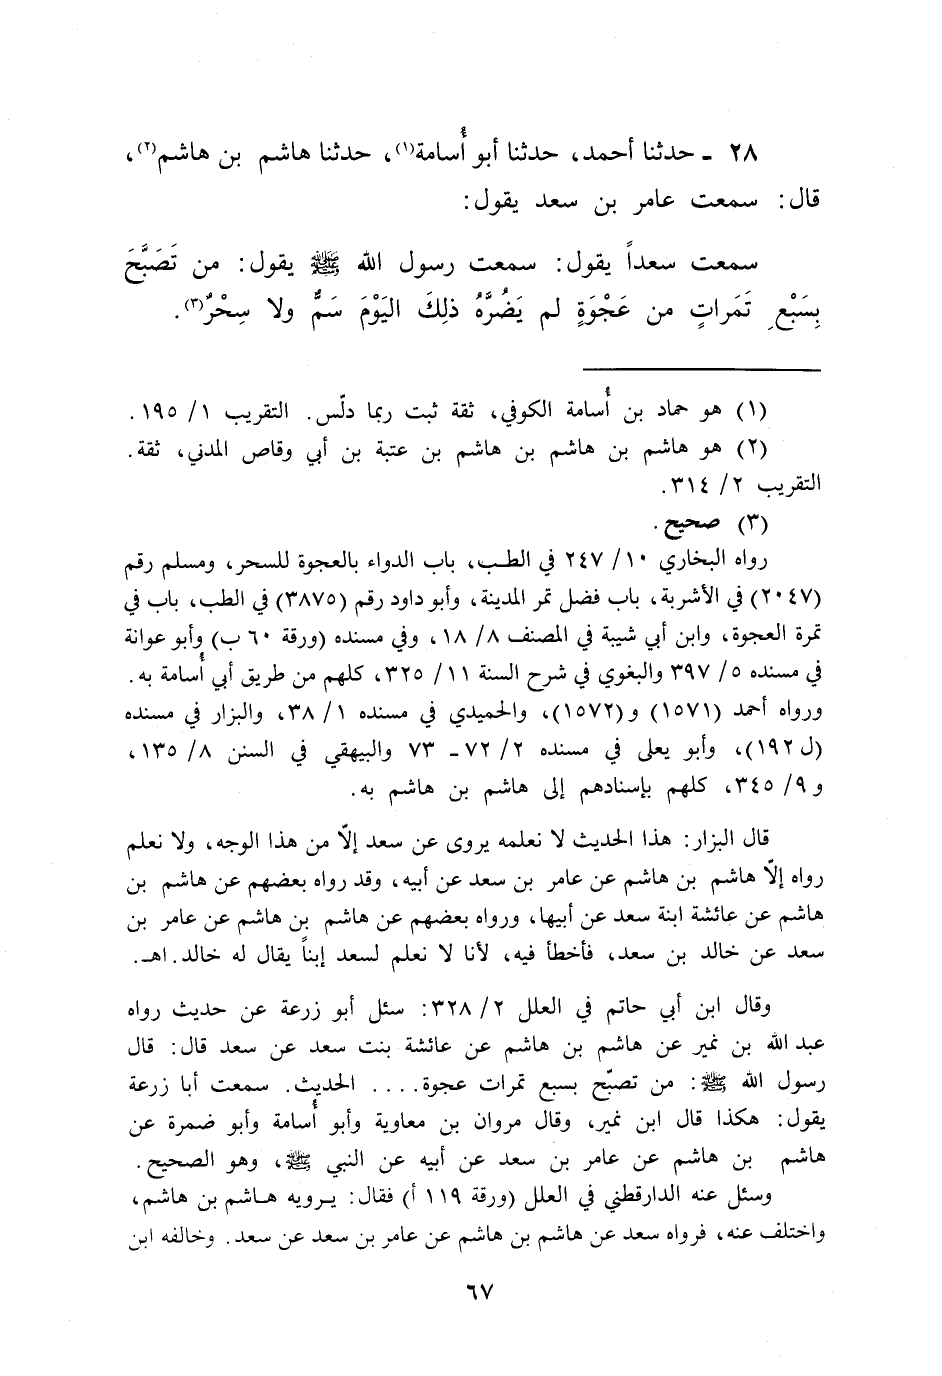 ٢٨ ـ حدثنا أحمد، حدثنا أبو أُسامة(١)، حدثنا هاشم بن هاشم(٢)،
قال: سمعت عامر بن سعد يقول:
سمعت سعداً يقول: سمعت رسول الله ﷺ يقول: من تَصَبَّحَ
بِسَبْعِ تَمَراتٍ من عَجْوَةٍ لم يَضُرَّهُ ذلِكَ اليَوْمَ سَمٌّ ولا سِحْرٌ(٣).
(١) هو حماد بن أُسامة الكوفي، ثقة ثبت ربما دلّس. التقريب ١/ ١٩٥.
(٢) هو هاشم بن هاشم بن هاشم بن عتبة بن أبي وقاص المدني، ثقة.
التقريب ٢/ ٣١٤.
(٣) صحيح.
رواه البخاري ١٠/ ٢٤٧ في الطب، باب الدواء بالعجوة للسحر، ومسلم رقم
(٢٠٤٧) في الأشربة، باب فضل تمر المدينة، وأبو داود رقم (٣٨٧٥) في الطب، باب في
تمرة العجوة، وابن أبي شيبة في المصنف ٨/ ١٨، وفي مسنده (ورقة ٦٠ ب) وأبو عوانة
في مسنده ٥/ ٣٩٧ والبغوي في شرح السنة ١١/ ٣٢٥، كلهم من طريق أبي أُسامة به.
ورواه أحمد (١٥٧١) و(١٥٧٢)، والحميدي في مسنده ١/ ٣٨، والبزار في مسنده
(ل ١٩٢)، وأبو يعلى في مسنده ٢/ ٧٢ ـ ٧٣ والبيهقي في السنن ٨/ ١٣٥،
و٩/ ٣٤٥، كلهم بإسنادهم إلى هاشم بن هاشم به.
قال البزار: هذا الحديث لا نعلمه يروى عن سعد إلاّ من هذا الوجه، ولا نعلم
رواه إلاّ هاشم بن هاشم عن عامر بن سعد عن أبيه، وقد رواه بعضهم عن هاشم بن
هاشم عن عائشة ابنة سعد عن أبيها، ورواه بعضهم عن هاشم بن هاشم عن عامر بن
سعد عن خالد بن سعد، فأخطأ فيه، لأنا لا نعلم لسعد إبناً يقال له خالد. اهـ.
وقال ابن أبي حاتم في العلل ٢/ ٣٢٨: سئل أبو زرعة عن حديث رواه
عبد الله بن نمير عن هاشم بن هاشم عن عائشة بنت سعد عن سعد قال: قال
رسول الله ﷺ: من تصبّح بسبع تمرات عجوة.... الحديث. سمعت أبا زرعة
يقول: هكذا قال ابن نمير، وقال مروان بن معاوية وأبو أُسامة وأبو ضمرة عن
هاشم بن هاشم عن عامر بن سعد عن أبيه عن النبي ﷺ، وهو الصحيح.
وسئل عنه الدارقطني في العلل (ورقة ١١٩ أ) فقال: يرويه هاشم بن هاشم،
واختلف عنه، فرواه سعد عن هاشم بن هاشم عن عامر بن سعد عن سعد. وخالفه ابن
٦٧